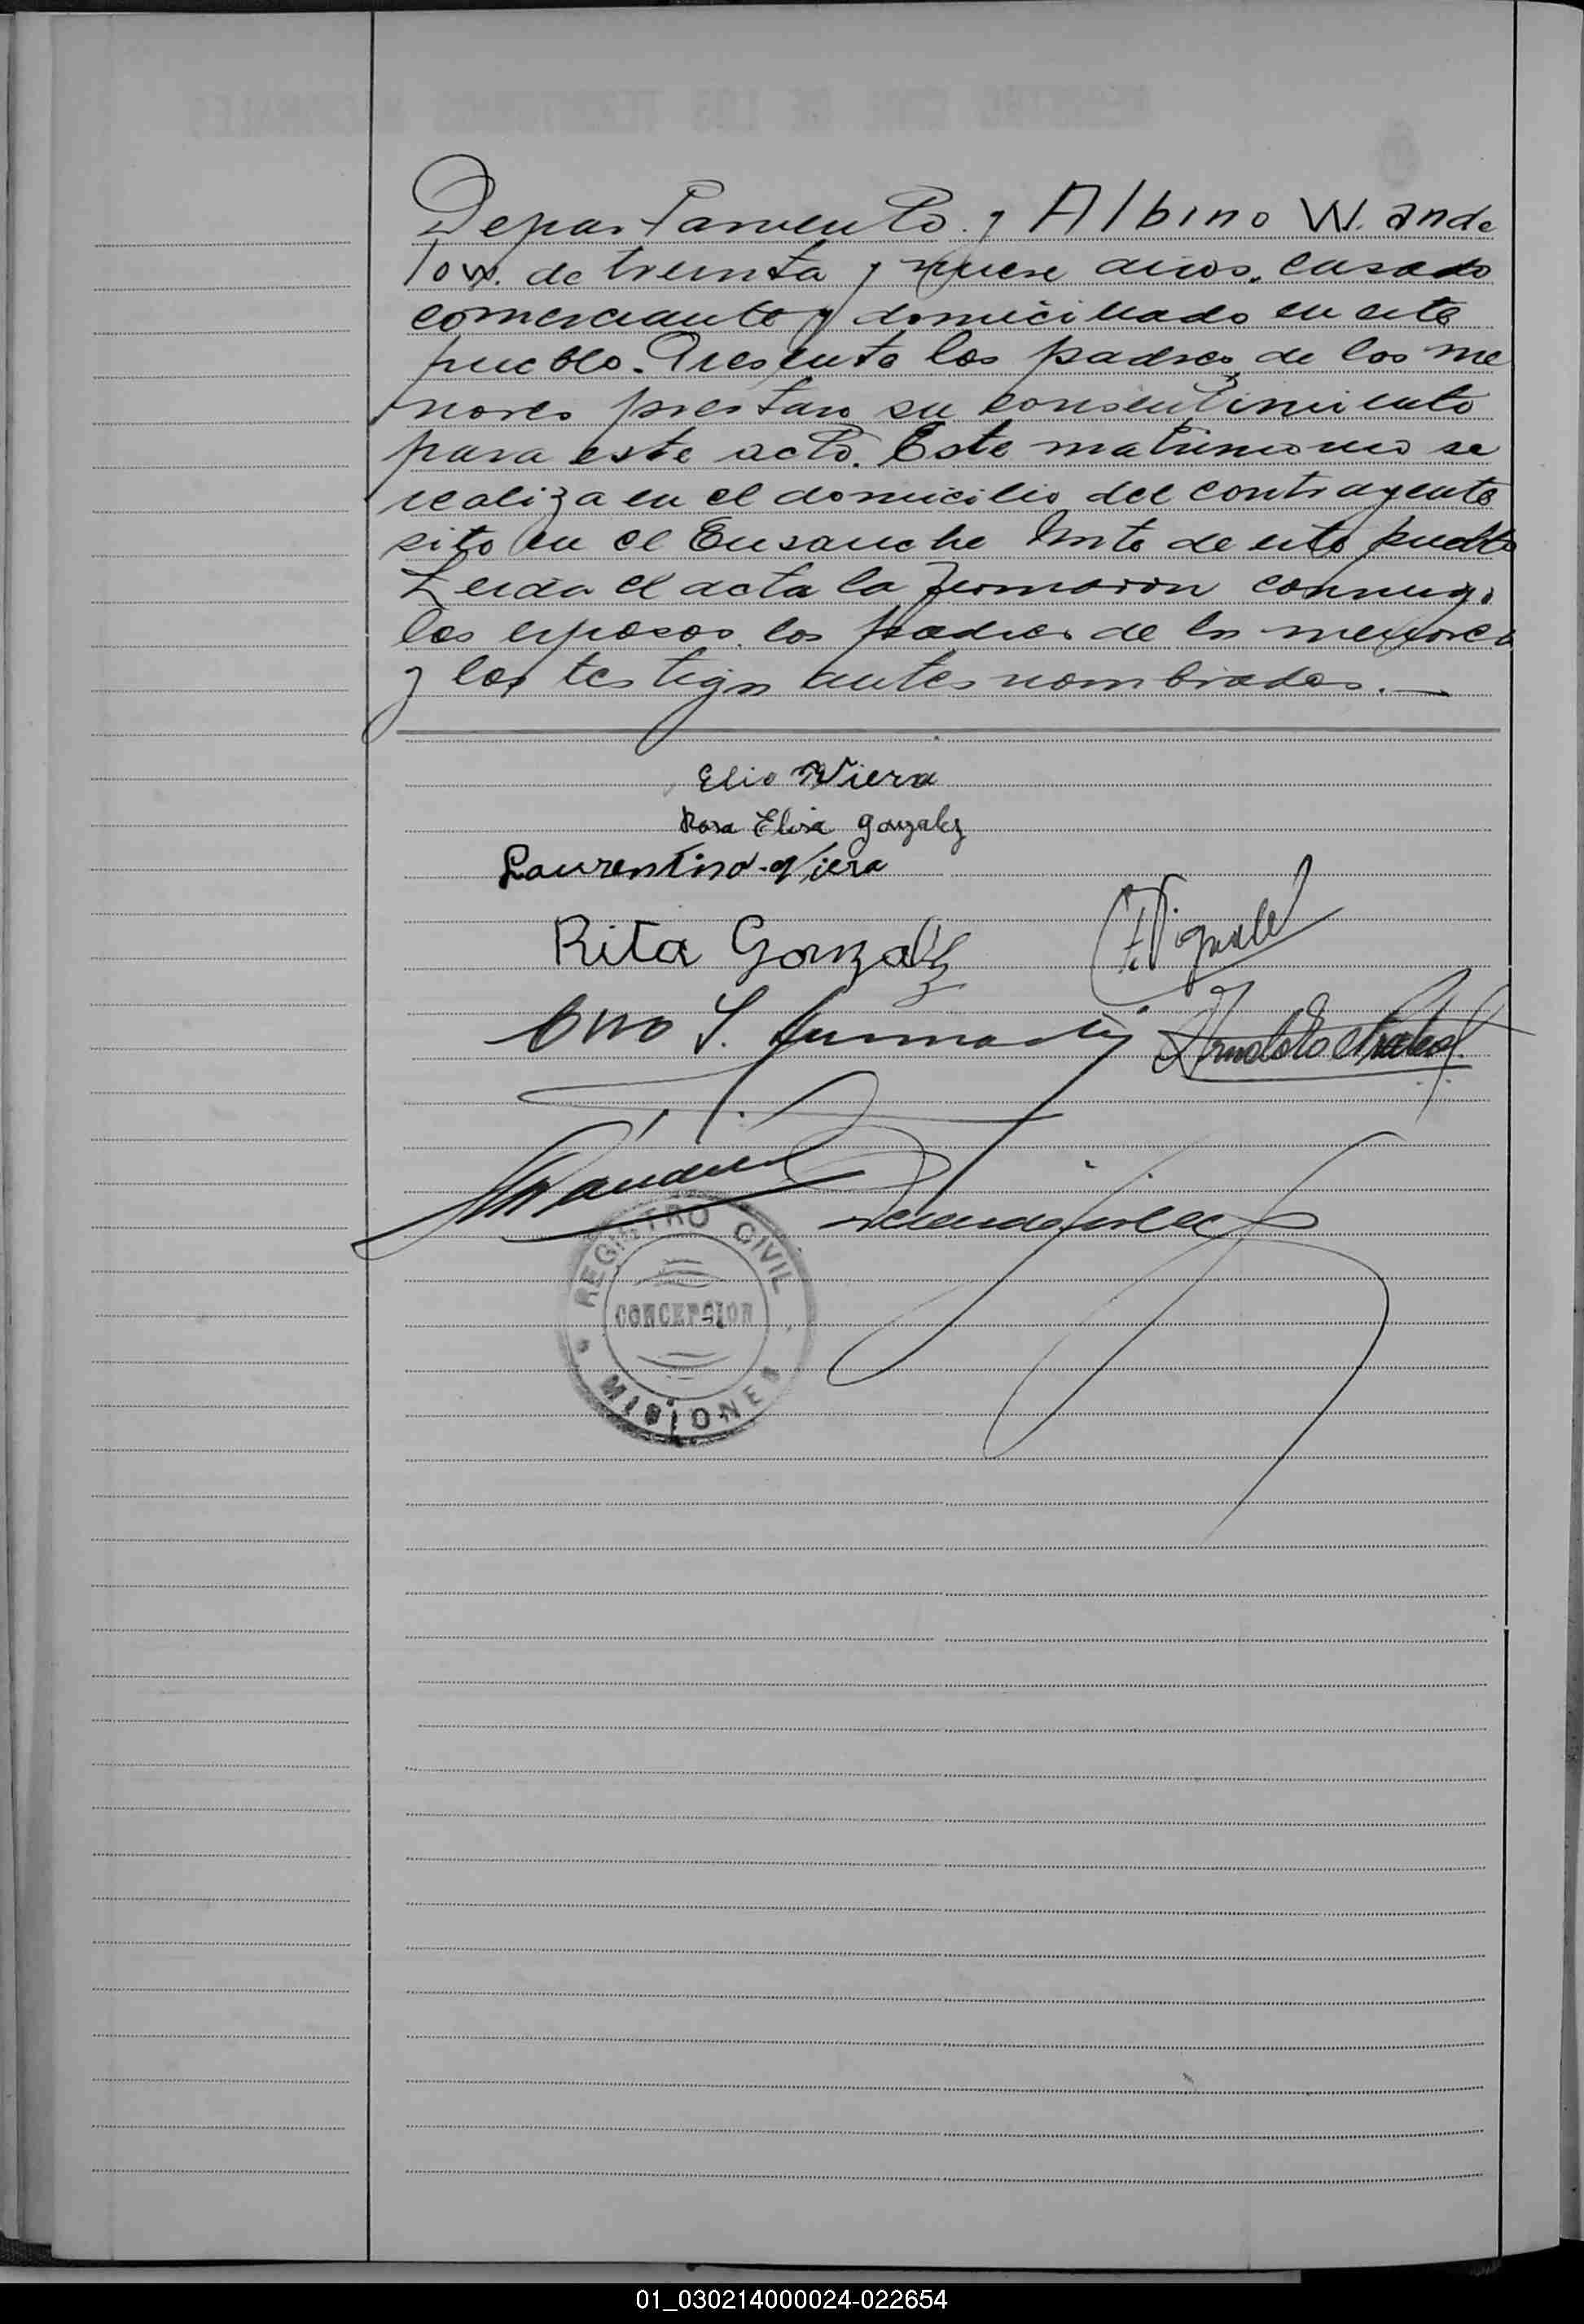 Departamento y Albino W. ande
low. de treinta y nueve años, casado
comerciante y domiciliado en este
pueblo. Presente los padres de los me
nores prestan su consentimiento
para este acto. Este matrimonio se
realiza en el domicilio del contrayente
sito en el Ensanche Norte de este pueblo
Leida el acta la firmaron conmigo
los esposos, los padres de los menores
y los testigos antes nombrados.—
Elio Viera
Rosa Elisa Gonzalez
Laurentino Viera
Rita Gonzalez
F. Vignale
REGISTRO CIVIL
CONCEPCION
MISIONES
01_030214000024-022654